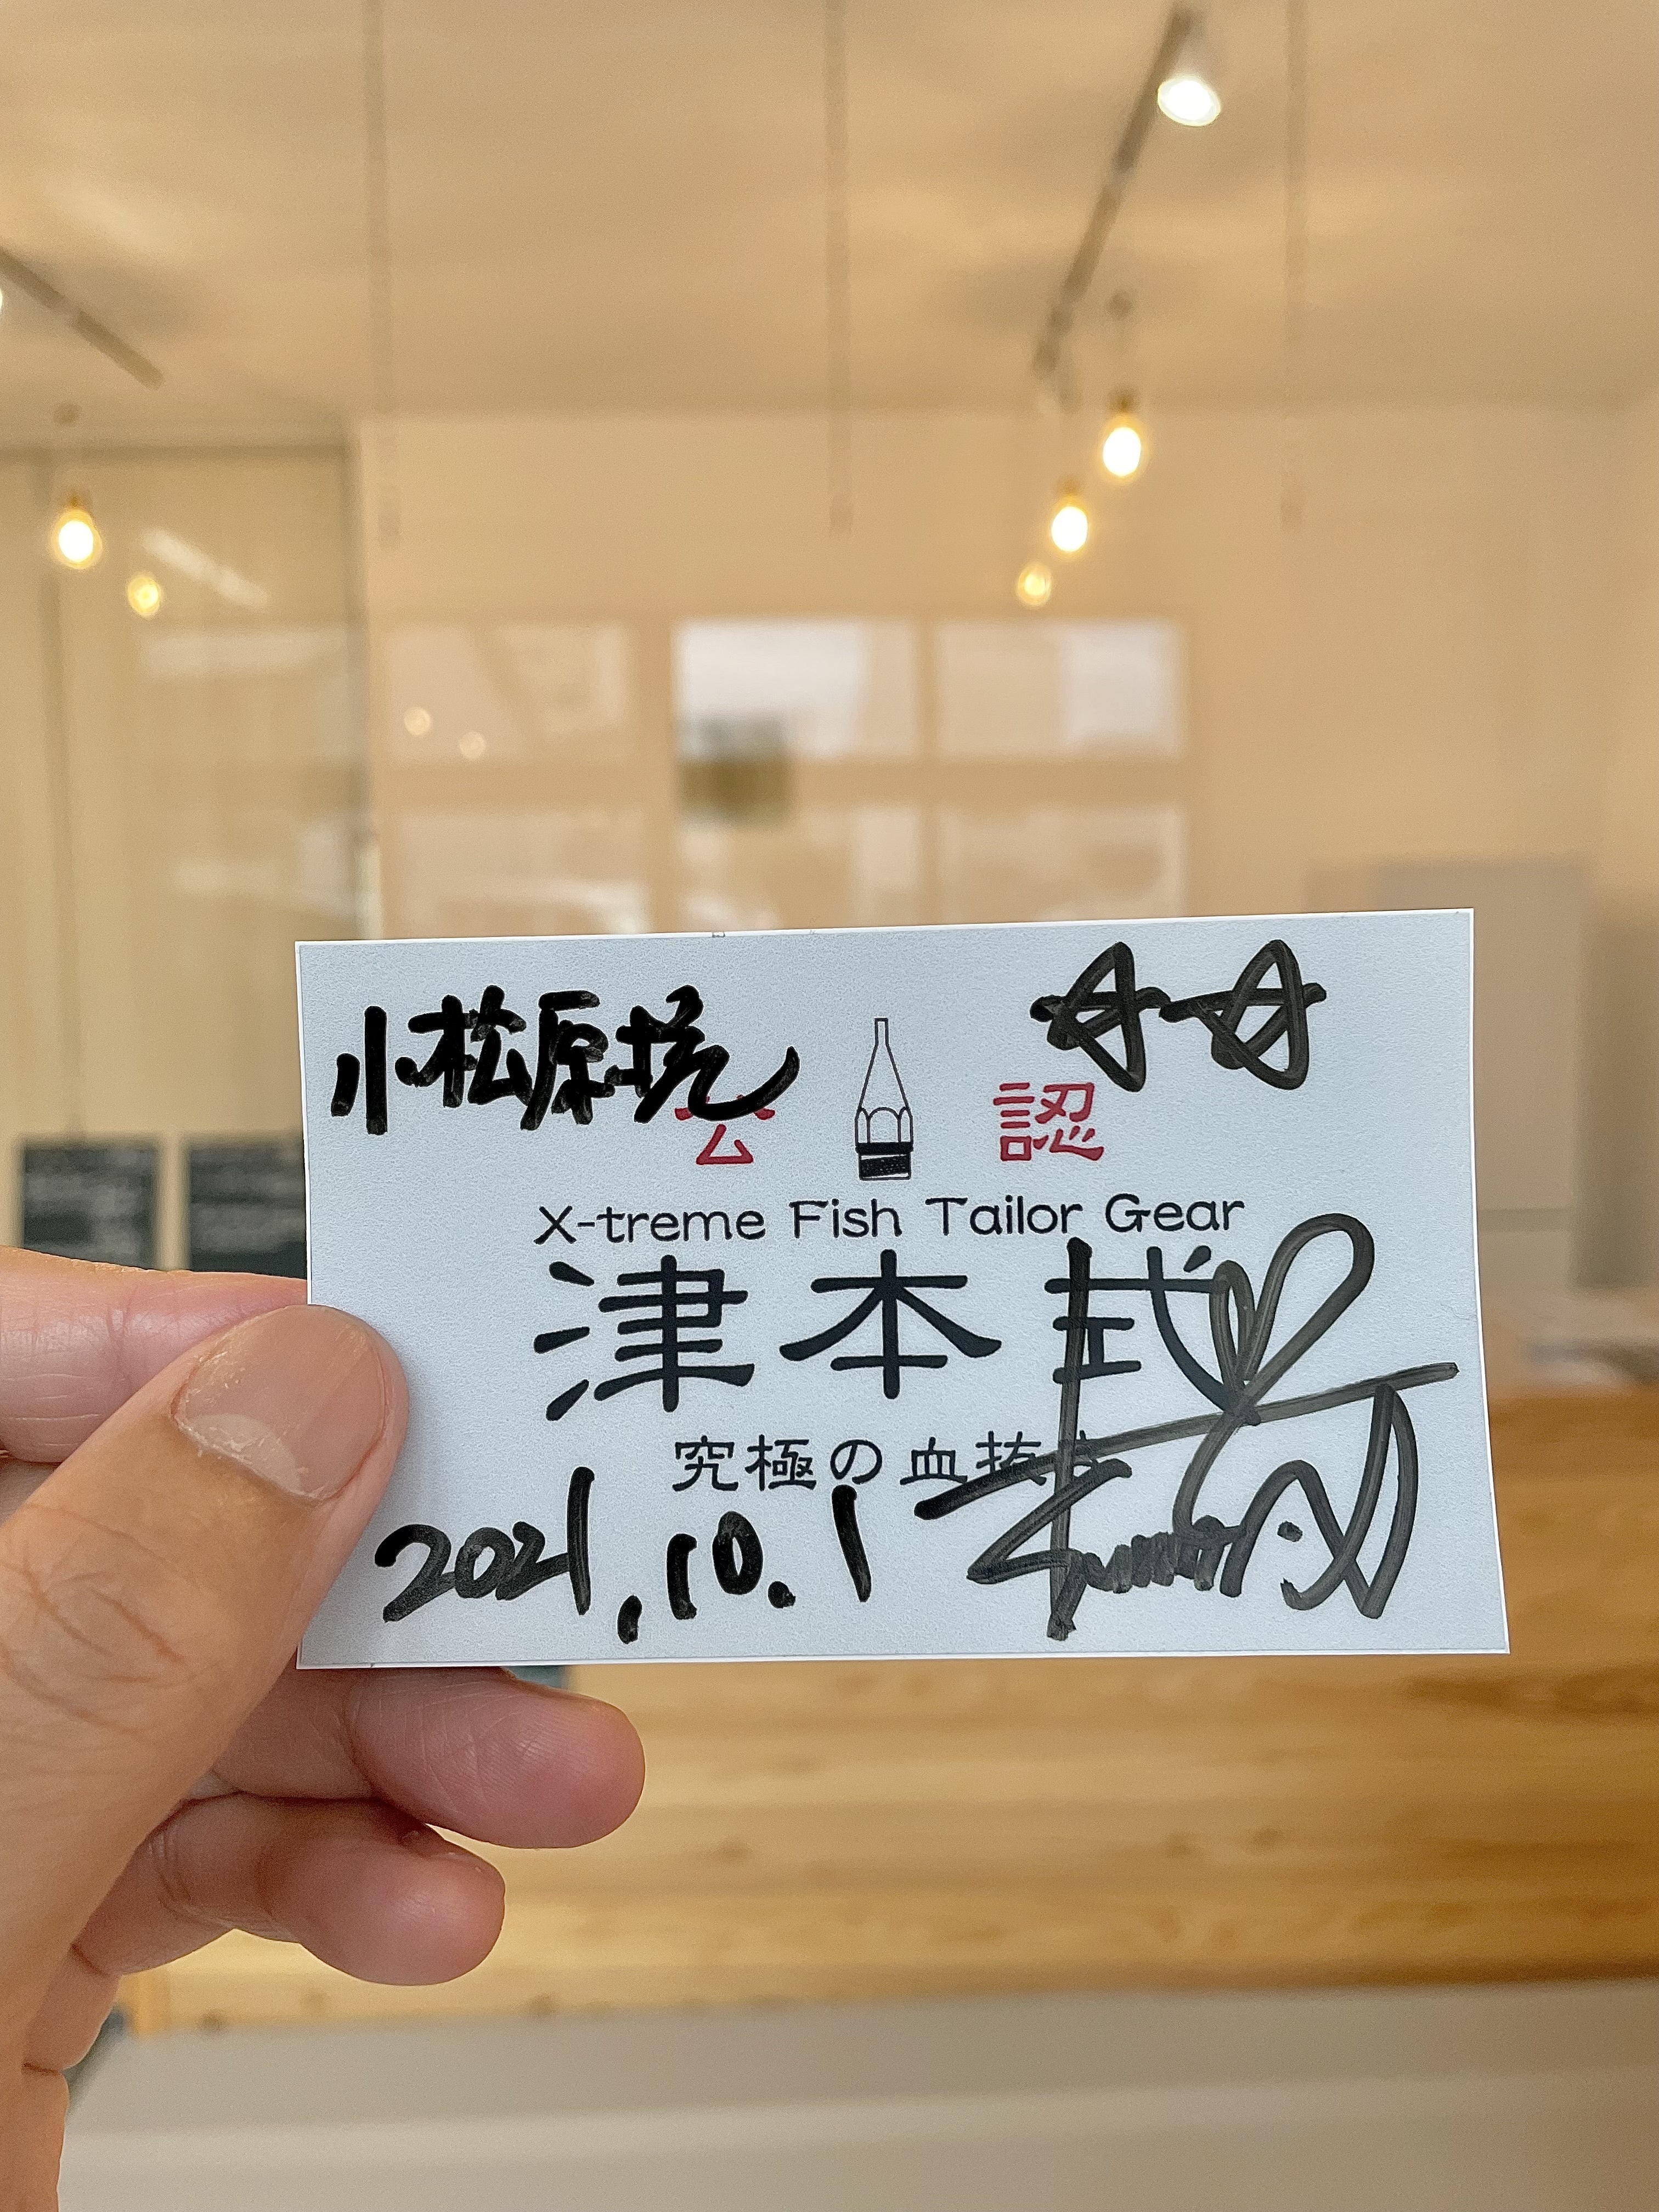 小松原拡
☆☆
公認
X-treme Fish Tailor Gear
津本式
究極の血抜き
2021.10.1